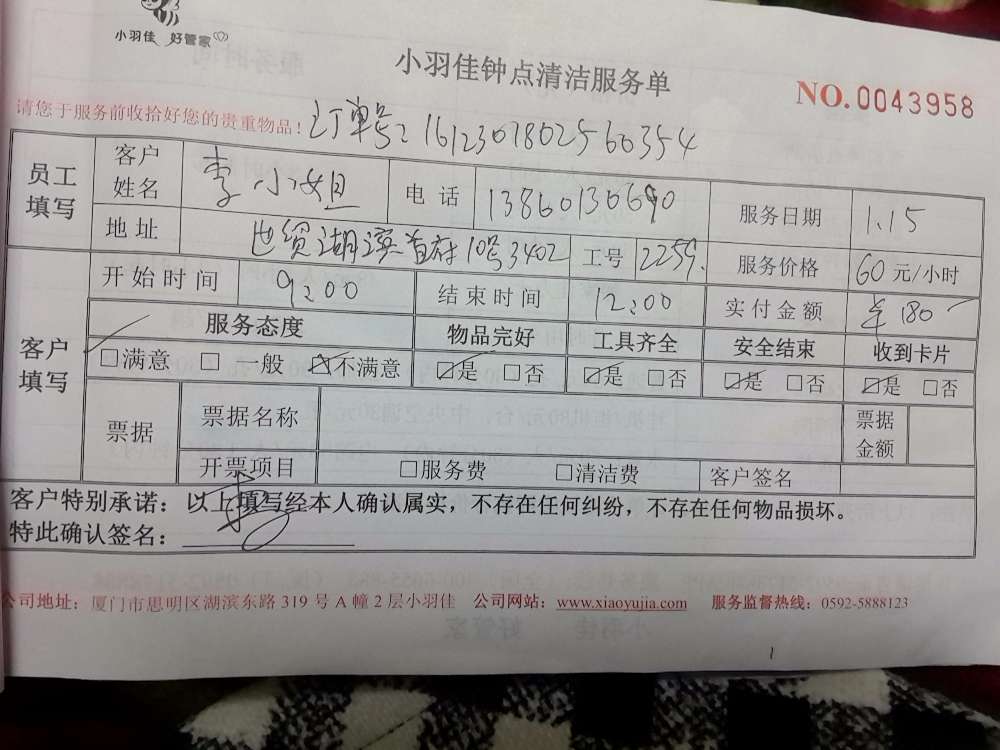 小羽佳 好管家
小羽佳钟点清洁服务单
NO.0043958
请您于服务前收拾好您的贵重物品！
订单号：16123018025660354
员工填写 客户姓名 李小姐 电话 13860136690 服务日期 1.15
地址 世贸湖滨首府10号3402 工号 2259. 服务价格 60元/小时
客户填写 开始时间 9:00 结束时间 12:00 实付金额 ¥180
服务态度 物品完好 工具齐全 安全结束 收到卡片
□满意 □一般 ☑不满意 ☑是 □否 ☑是 □否 ☑是 □否 ☑是 □否
票据 票据名称 票据金额
开票项目 □服务费 □清洁费 客户签名
客户特别承诺：以上填写经本人确认属实，不存在任何纠纷，不存在任何物品损坏。
特此确认签名：
公司地址：厦门市思明区湖滨东路 319 号 A 幢 2 层小羽佳 公司网站：www.xiaoyujia.com 服务监督热线：0592-5888123